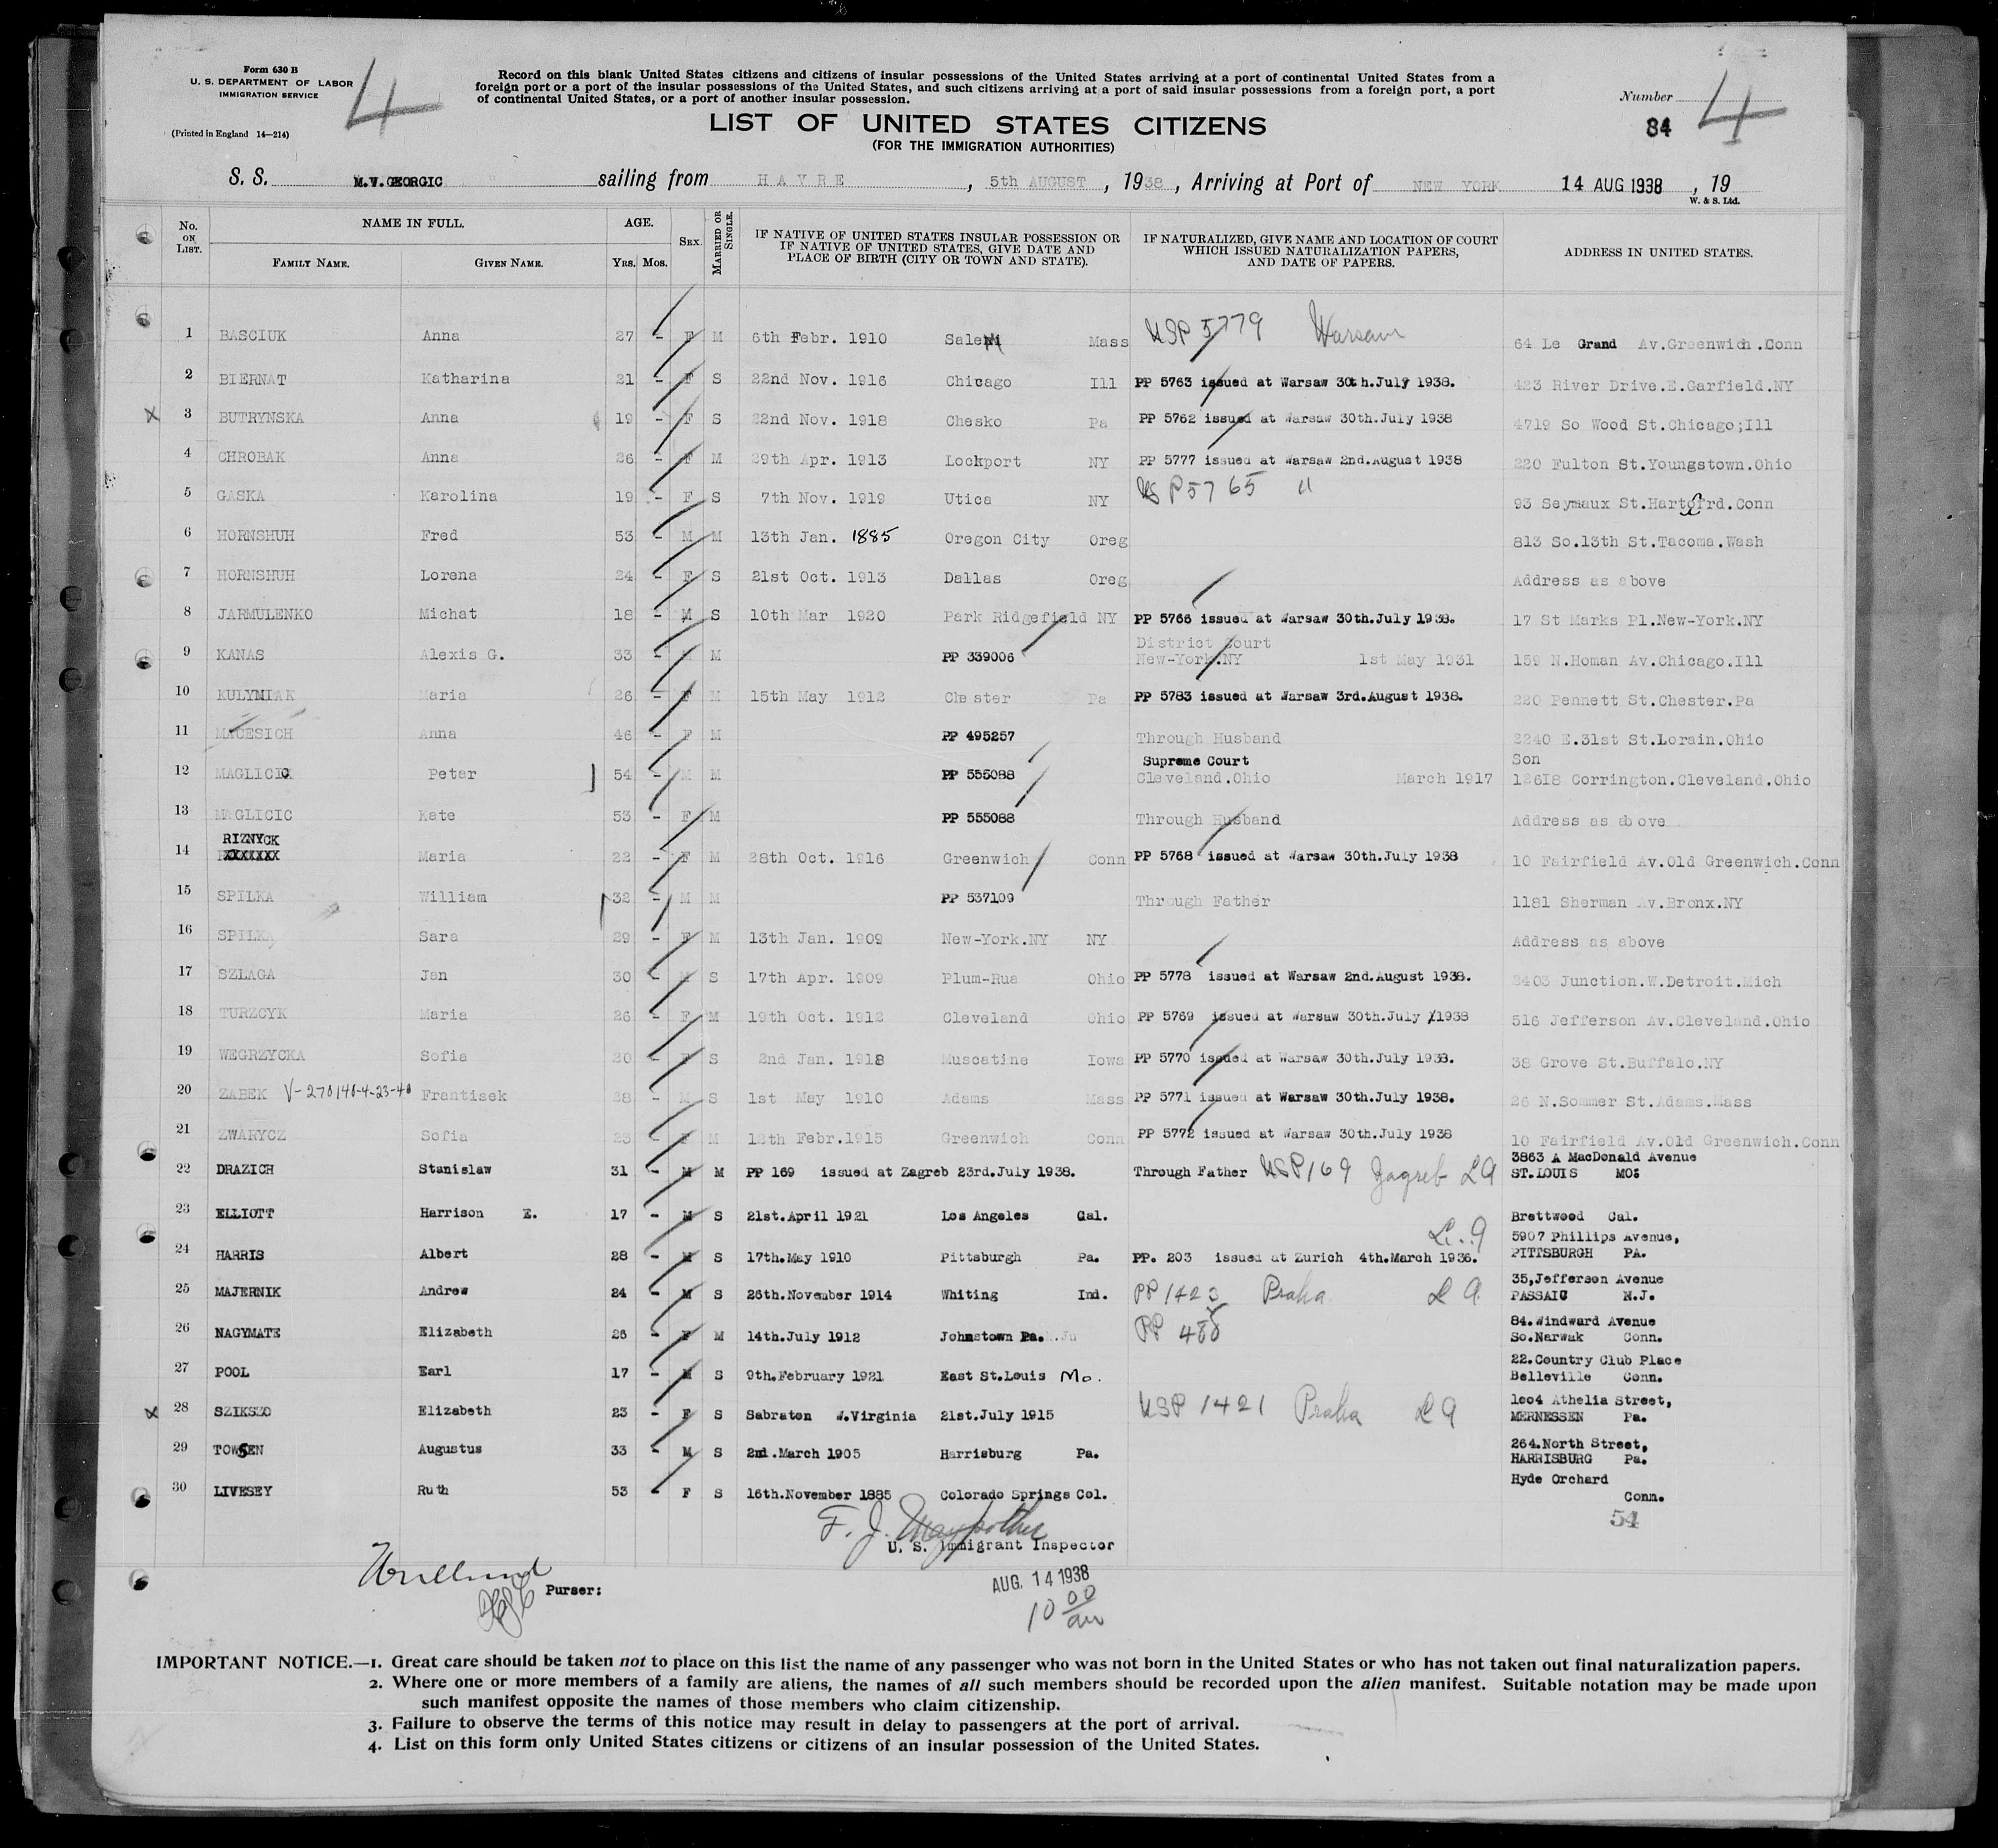 Form 630 B
U. S. DEPARTMENT OF LABOR
IMMIGRATION SERVICE
(Printed in England 14—214)
4
Record on this blank United States citizens and citizens of insular possessions of the United States arriving at a port of continental United States from a
foreign port or a port of the insular possessions of the United States, and such citizens arriving at a port of said insular possessions from a foreign port, a port
of continental United States, or a port of another insular possession.
Number
4
84
LIST OF UNITED STATES CITIZENS
(FOR THE IMMIGRATION AUTHORITIES)
S. S. M.V.GEORGIC sailing from HAVRE, 5th AUGUST, 1938, Arriving at Port of NEW YORK 14 AUG 1938, 19
W. & S. Ltd.
No. ON LIST. NAME IN FULL. FAMILY NAME. GIVEN NAME. AGE. YRS. MOS. SEX. MARRIED OR SINGLE. IF NATIVE OF UNITED STATES INSULAR POSSESSION OR IF NATIVE OF UNITED STATES, GIVE DATE AND PLACE OF BIRTH (CITY OR TOWN AND STATE). IF NATURALIZED, GIVE NAME AND LOCATION OF COURT WHICH ISSUED NATURALIZATION PAPERS, AND DATE OF PAPERS. ADDRESS IN UNITED STATES.
1 BASCIUK Anna 27 - F M 6th Febr. 1910 Salem Mass USP 5779 Warsaw 64 Le Grand Av.Greenwich.Conn
2 BIERNAT Katharina 21 - F S 22nd Nov. 1916 Chicago Ill PP 5763 issued at Warsaw 30th.July 1938. 423 River Drive.E.Garfield.NY
X 3 BUTRYNSKA Anna 19 - F S 22nd Nov. 1918 Chesko Pa PP 5762 issued at Warsaw 30th.July 1938 4719 So Wood St.Chicago;Ill
4 CHROBAK Anna 26 - F M 29th Apr. 1913 Lockport NY PP 5777 issued at Warsaw 2nd.August 1938 220 Fulton St.Youngstown.Ohio
5 GASKA Karolina 19 - F S 7th Nov. 1919 Utica NY USP 5765 " 93 Seymaux St.Hartford.Conn
6 HORNSHUH Fred 53 - M M 13th Jan. 1885 Oregon City Oreg 813 So.13th St.Tacoma.Wash
7 HORNSHUH Lorena 24 - F S 21st Oct. 1913 Dallas Oreg Address as above
8 JARMULENKO Michat 18 - M S 10th Mar 1920 Park Ridgefield NY PP 5766 issued at Warsaw 30th.July 1938. 17 St Marks Pl.New-York.NY
9 KANAS Alexis G. 33 - M M PP 339006 District Court New-York.NY 1st May 1931 159 N.Homan Av.Chicago.Ill
10 KULYMIAK Maria 26 - F M 15th May 1912 Chester Pa PP 5783 issued at Warsaw 3rd.August 1938. 220 Pennett St.Chester.Pa
11 MACESICH Anna 46 - F M PP 495257 Through Husband 2240 E.31st St.Lorain.Ohio
12 MAGLICIC Peter 54 - M M PP 555088 Supreme Court Cleveland.Ohio March 1917 Son 12618 Corrington.Cleveland.Ohio
13 MAGLICIC Kate 53 - F M PP 555088 Through Husband Address as above
14 RIZNYCK Maria 22 - F M 28th Oct. 1916 Greenwich Conn PP 5768 issued at Warsaw 30th.July 1938 10 Fairfield Av.Old Greenwich.Conn
15 SPILKA William 32 - M M PP 537109 Through Father 1181 Sherman Av.Bronx.NY
16 SPILKA Sara 29 - F M 13th Jan. 1909 New-York.NY NY Address as above
17 SZLAGA Jan 30 - M S 17th Apr. 1909 Plum-Rua Ohio PP 5778 issued at Warsaw 2nd.August 1938. 2403 Junction.W.Detroit.Mich
18 TURZCYK Maria 26 - F M 19th Oct. 1912 Cleveland Ohio PP 5769 issued at Warsaw 30th.July 1938 516 Jefferson Av.Cleveland.Ohio
19 WEGRZYCKA Sofia 20 - F S 2nd Jan. 1918 Muscatine Iowa PP 5770 issued at Warsaw 30th.July 1938. 38 Grove St.Buffalo.NY
20 ZABEK V-270140-4-23-40 Frantisek 28 - M S 1st May 1910 Adams Mass PP 5771 issued at Warsaw 30th.July 1938. 26 N.Sommer St.Adams.Mass
21 ZWARYCZ Sofia 23 - F M 12th Febr.1915 Greenwich Conn PP 5772 issued at Warsaw 30th.July 1938 10 Fairfield Av.Old Greenwich.Conn
22 DRAZICH Stanislaw 31 - M M PP 169 issued at Zagreb 23rd.July 1938. Through Father USP 169 Zagreb L9 3863 A MacDonald Avenue ST.LOUIS MO:
23 ELLIOTT Harrison E. 17 - M S 21st.April 1921 Los Angeles Cal. Brettwood Cal.
24 HARRIS Albert 28 - M S 17th.May 1910 Pittsburgh Pa. PP. 203 issued at Zurich 4th.March 1936. L.9 5907 Phillips Avenue, PITTSBURGH PA.
25 MAJERNIK Andrew 24 - M S 26th.November 1914 Whiting Ind. PP 1423 Praha L9 35,Jefferson Avenue PASSAIC N.J.
26 NAGYMATE Elizabeth 26 - F M 14th.July 1912 Johnstown Pa. PP 488 84.Windward Avenue So.Narwak Conn.
27 POOL Earl 17 - M S 9th.February 1921 East St.Louis Mo. 22.Country Club Place Belleville Conn.
X 28 SZIKSZO Elizabeth 23 - F S Sabraton W.Virginia 21st.July 1915 USP 1421 Praha L9 1004 Athelia Street, MERNESSEN Pa.
29 TOWSEN Augustus 33 - M S 2nd.March 1905 Harrisburg Pa. 264.North Street, HARRISBURG Pa.
30 LIVESEY Ruth 53 - F S 16th.November 1885 Colorado Springs Col. Hyde Orchard Conn.
54
F. J.
U. S. Immigrant Inspector
Purser:
AUG. 14 1938
10 00 am
IMPORTANT NOTICE.—1. Great care should be taken not to place on this list the name of any passenger who was not born in the United States or who has not taken out final naturalization papers.
2. Where one or more members of a family are aliens, the names of all such members should be recorded upon the alien manifest. Suitable notation may be made upon
such manifest opposite the names of those members who claim citizenship.
3. Failure to observe the terms of this notice may result in delay to passengers at the port of arrival.
4. List on this form only United States citizens or citizens of an insular possession of the United States.